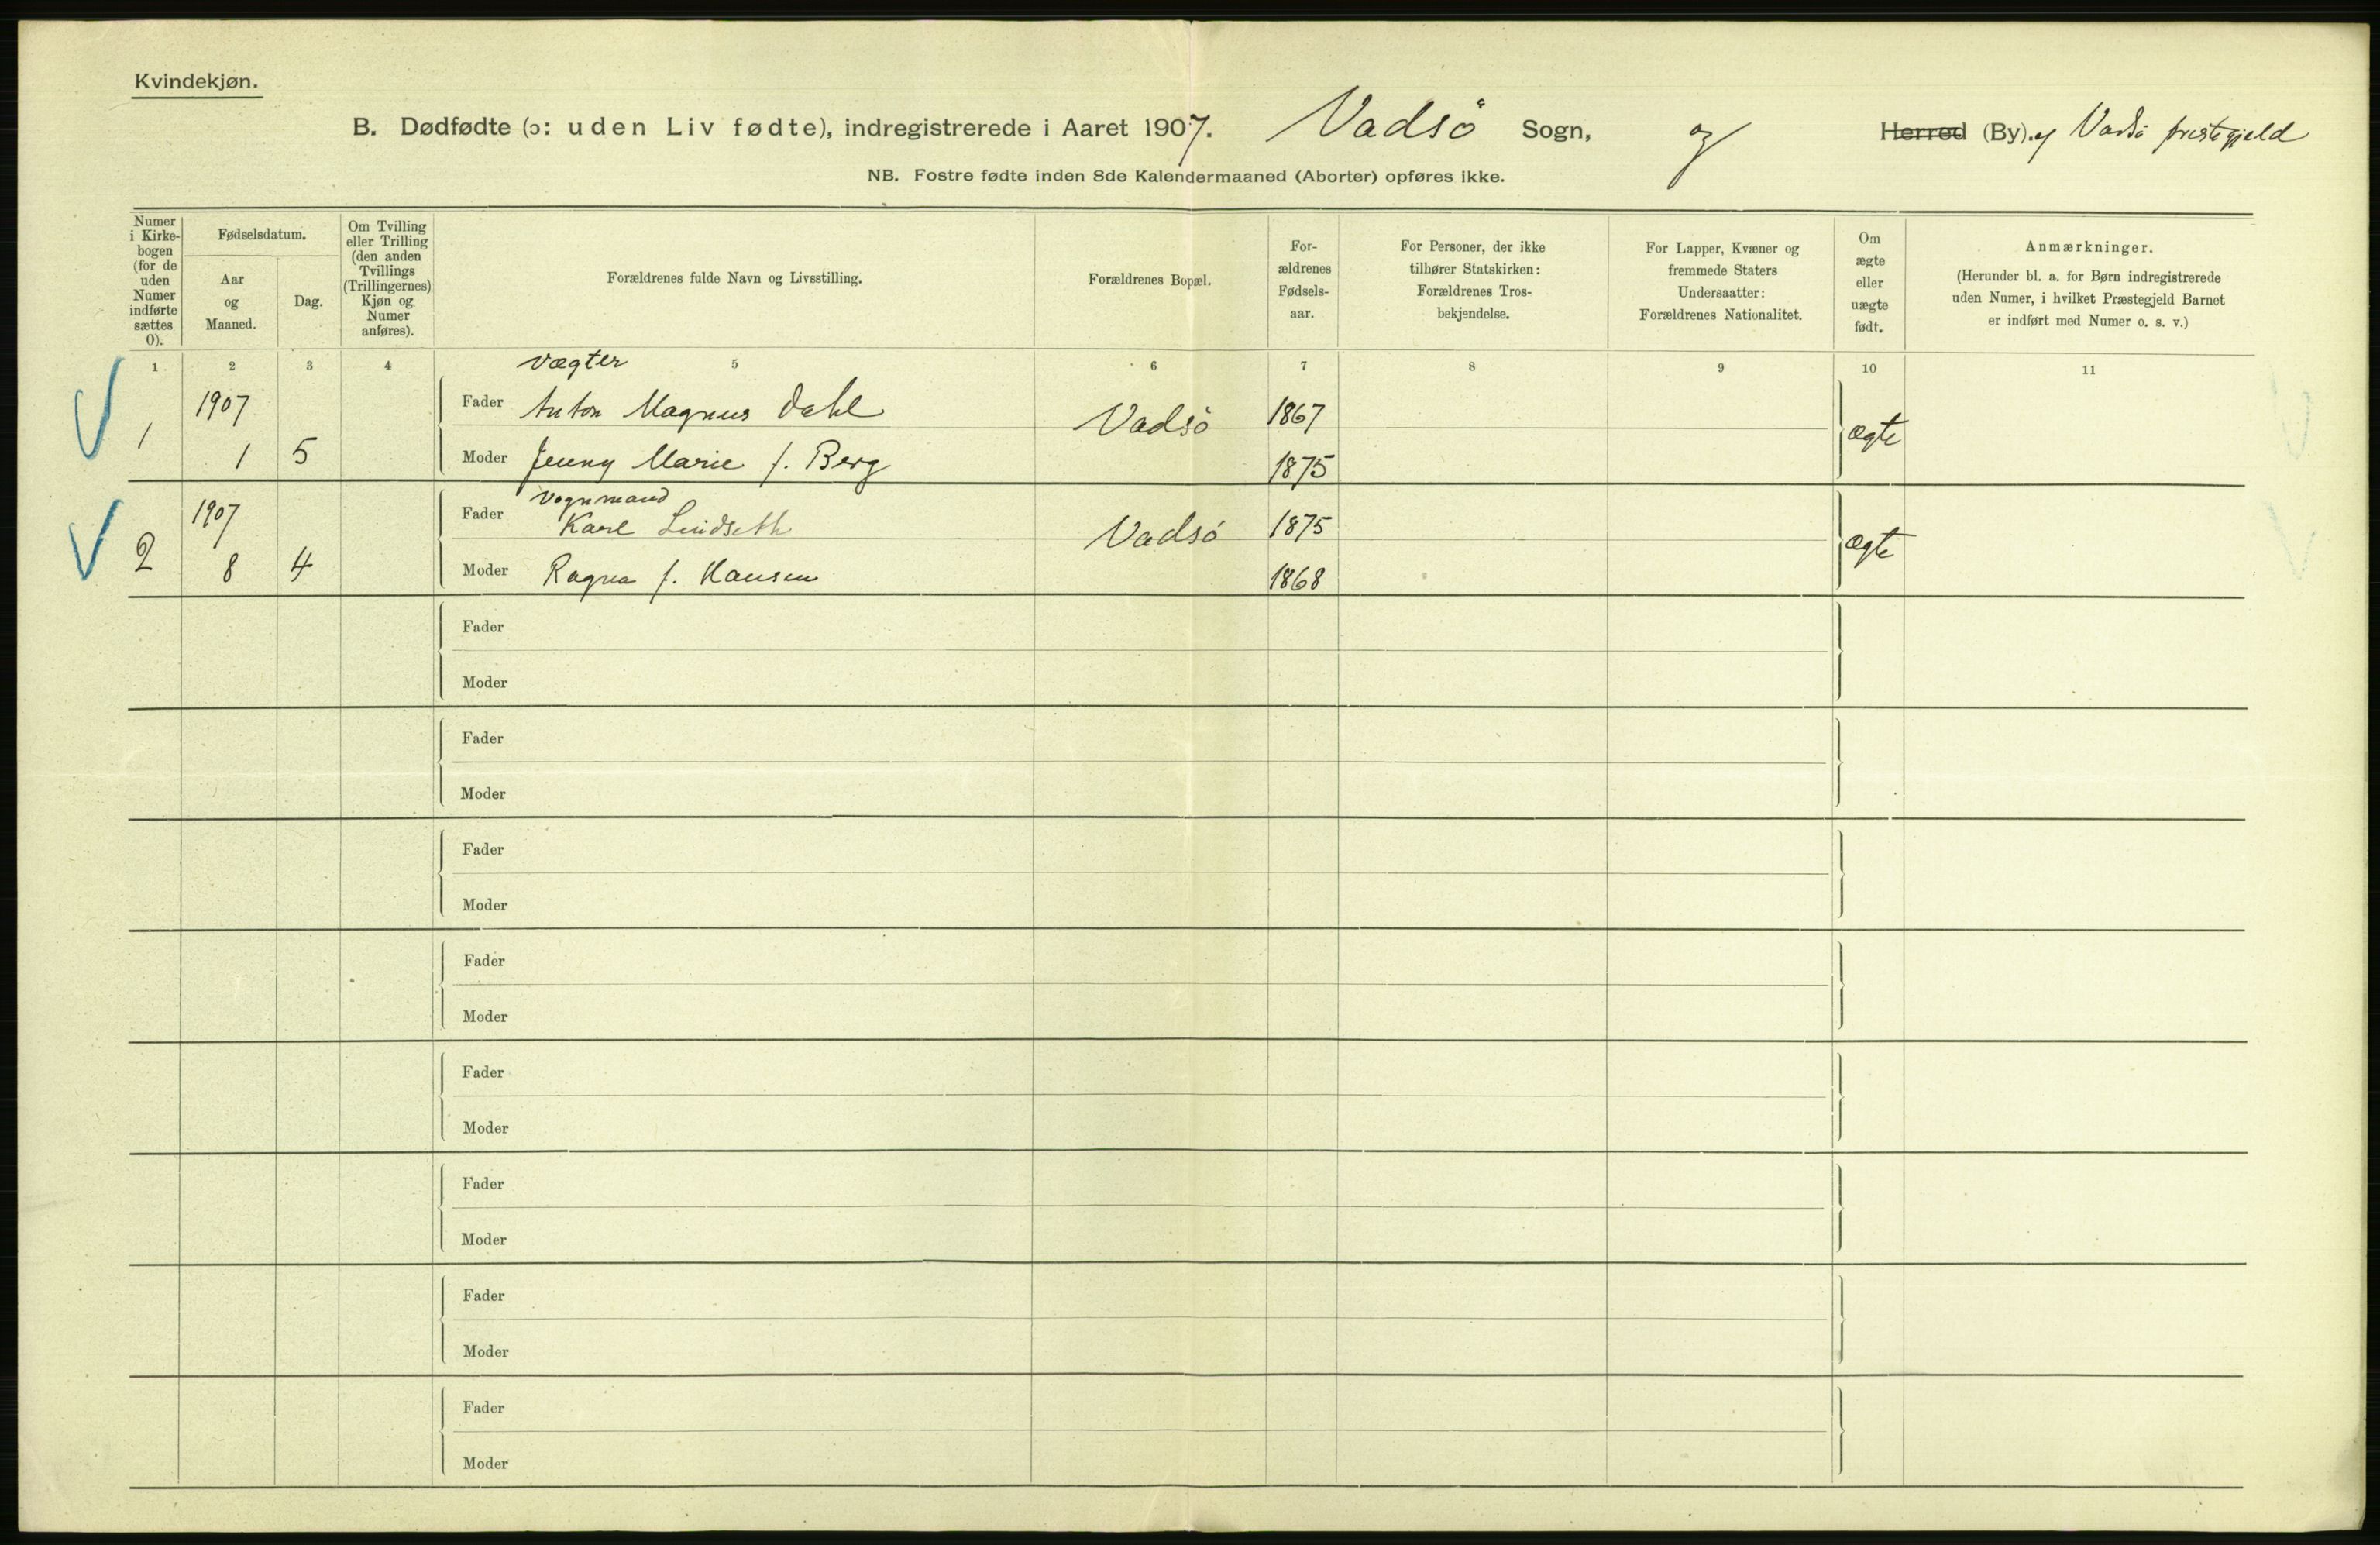 Kvindekjøn.
B. Dødfødte (ɔ: uden Liv fødte), indregistrerede i Aaret 1907. Vadsö Sogn, og Herred (By). af Vadsö prestegjeld
NB. Fostre fødte inden 8de Kalendermaaned (Aborter) opføres ikke.
Numer i Kirke-bogen (for de uden Numer indførte sættes 0).
Fødselsdatum.
Aar og Maaned.
Dag.
Om Tvilling eller Trilling (den anden Tvillings (Trillingernes) Kjøn og Numer anføres).
Forældrenes fulde Navn og Livsstilling.
Forældrenes Bopæl.
For-ældrenes Fødsels-aar.
For Personer, der ikke tilhører Statskirken: Forældrenes Tros-bekjendelse.
For Lapper, Kvæner og fremmede Staters Undersaatter: Forældrenes Nationalitet.
Om ægte eller uægte født.
Anmærkninger.
(Herunder bl. a. for Børn indregistrerede uden Numer, i hvilket Præstegjeld Barnet er indført med Numer o. s. v.)
1 2 3 4 5 6 7 8 9 10 11
Vægter
1907 Fader Anton Magnus Dahl Vadsö 1867
1 1 5 Moder Jenny Marie f. Berg 1875 ægte
Vognmand
1907 Fader Karl Lindseth Vadsö 1875
2 8 4 Moder Ragna f. Hansen 1868 ægte
Fader
Moder
Fader
Moder
Fader
Moder
Fader
Moder
Fader
Moder
Fader
Moder
Fader
Moder
Fader
Moder